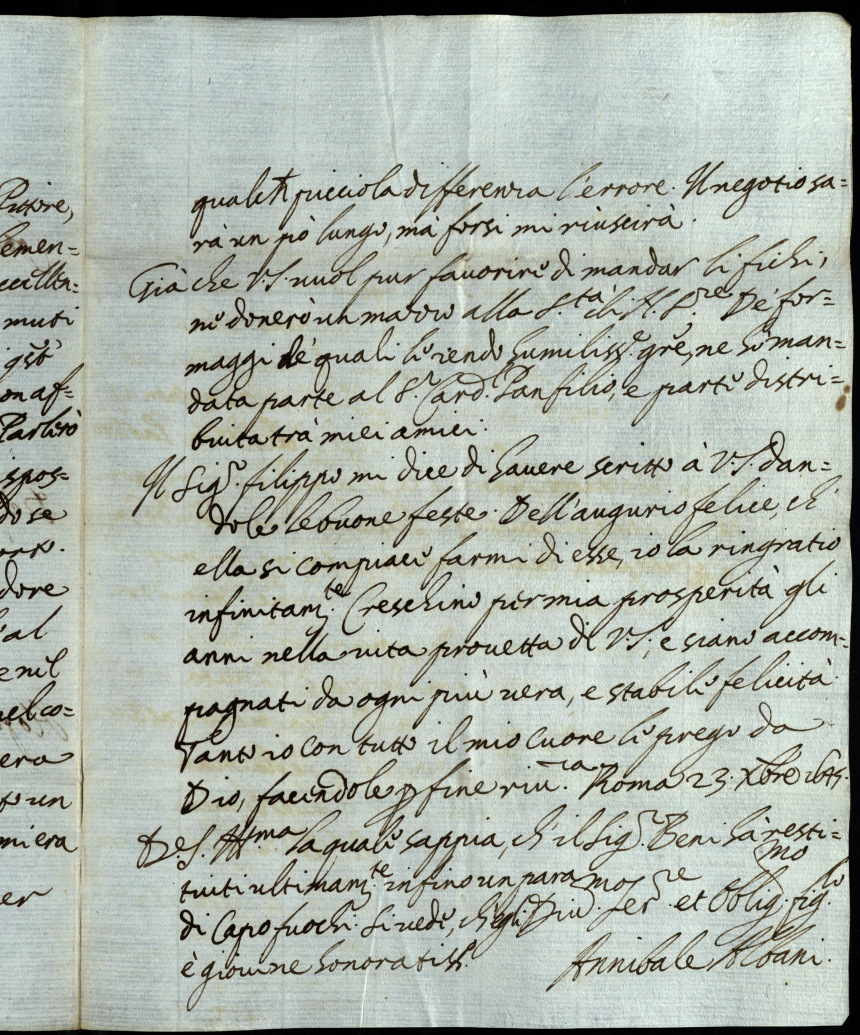 Pittore,
lemen=
muti
on af=
Parlerò
spos=
do se
dore
al
e nel
el co=
era
un
miera
er
qualche picciola differenza l'errore. Il negotio sa=
rà un pò lungo, mà forsi mi riuscirà.
Già che V.S. vuol pur favorire di mandar li fichi,
ne donerò un mazzo alla S.tà di N. S.re De for=
maggi de quali le rendo humiliss.e gre, ne hò man=
data parte al S.r Card. Panfilio, e parte distri=
buita trà miei amici.
Il Sig.r filippo mi dice di havere scritto à V.S. dan=
dole le buone feste. Dell'augurio felice, ch'
ella si compiace farmi di esse, io la ringratio
infinitam.te Creschino per mia prosperità gli
anni nella vita provetta di V.S., e siano accom=
pagnati da ogni più vera, e stabile felicità
Tanto io con tutto il mio cuore le prego da
Dio, facendole p fine riu.za Roma 23. Xbre 1645.
Di V.S. Ill.ma la quale sappia, ch'il Sig.r Beni hà resti=
tuiti ultimam.te infino un paramo
di Capofuochi. Si vede, ch'egli
è giovine honoratiss.o
Div.mo ser.re et Oblig.mo fig.lo
Annibale Albani.